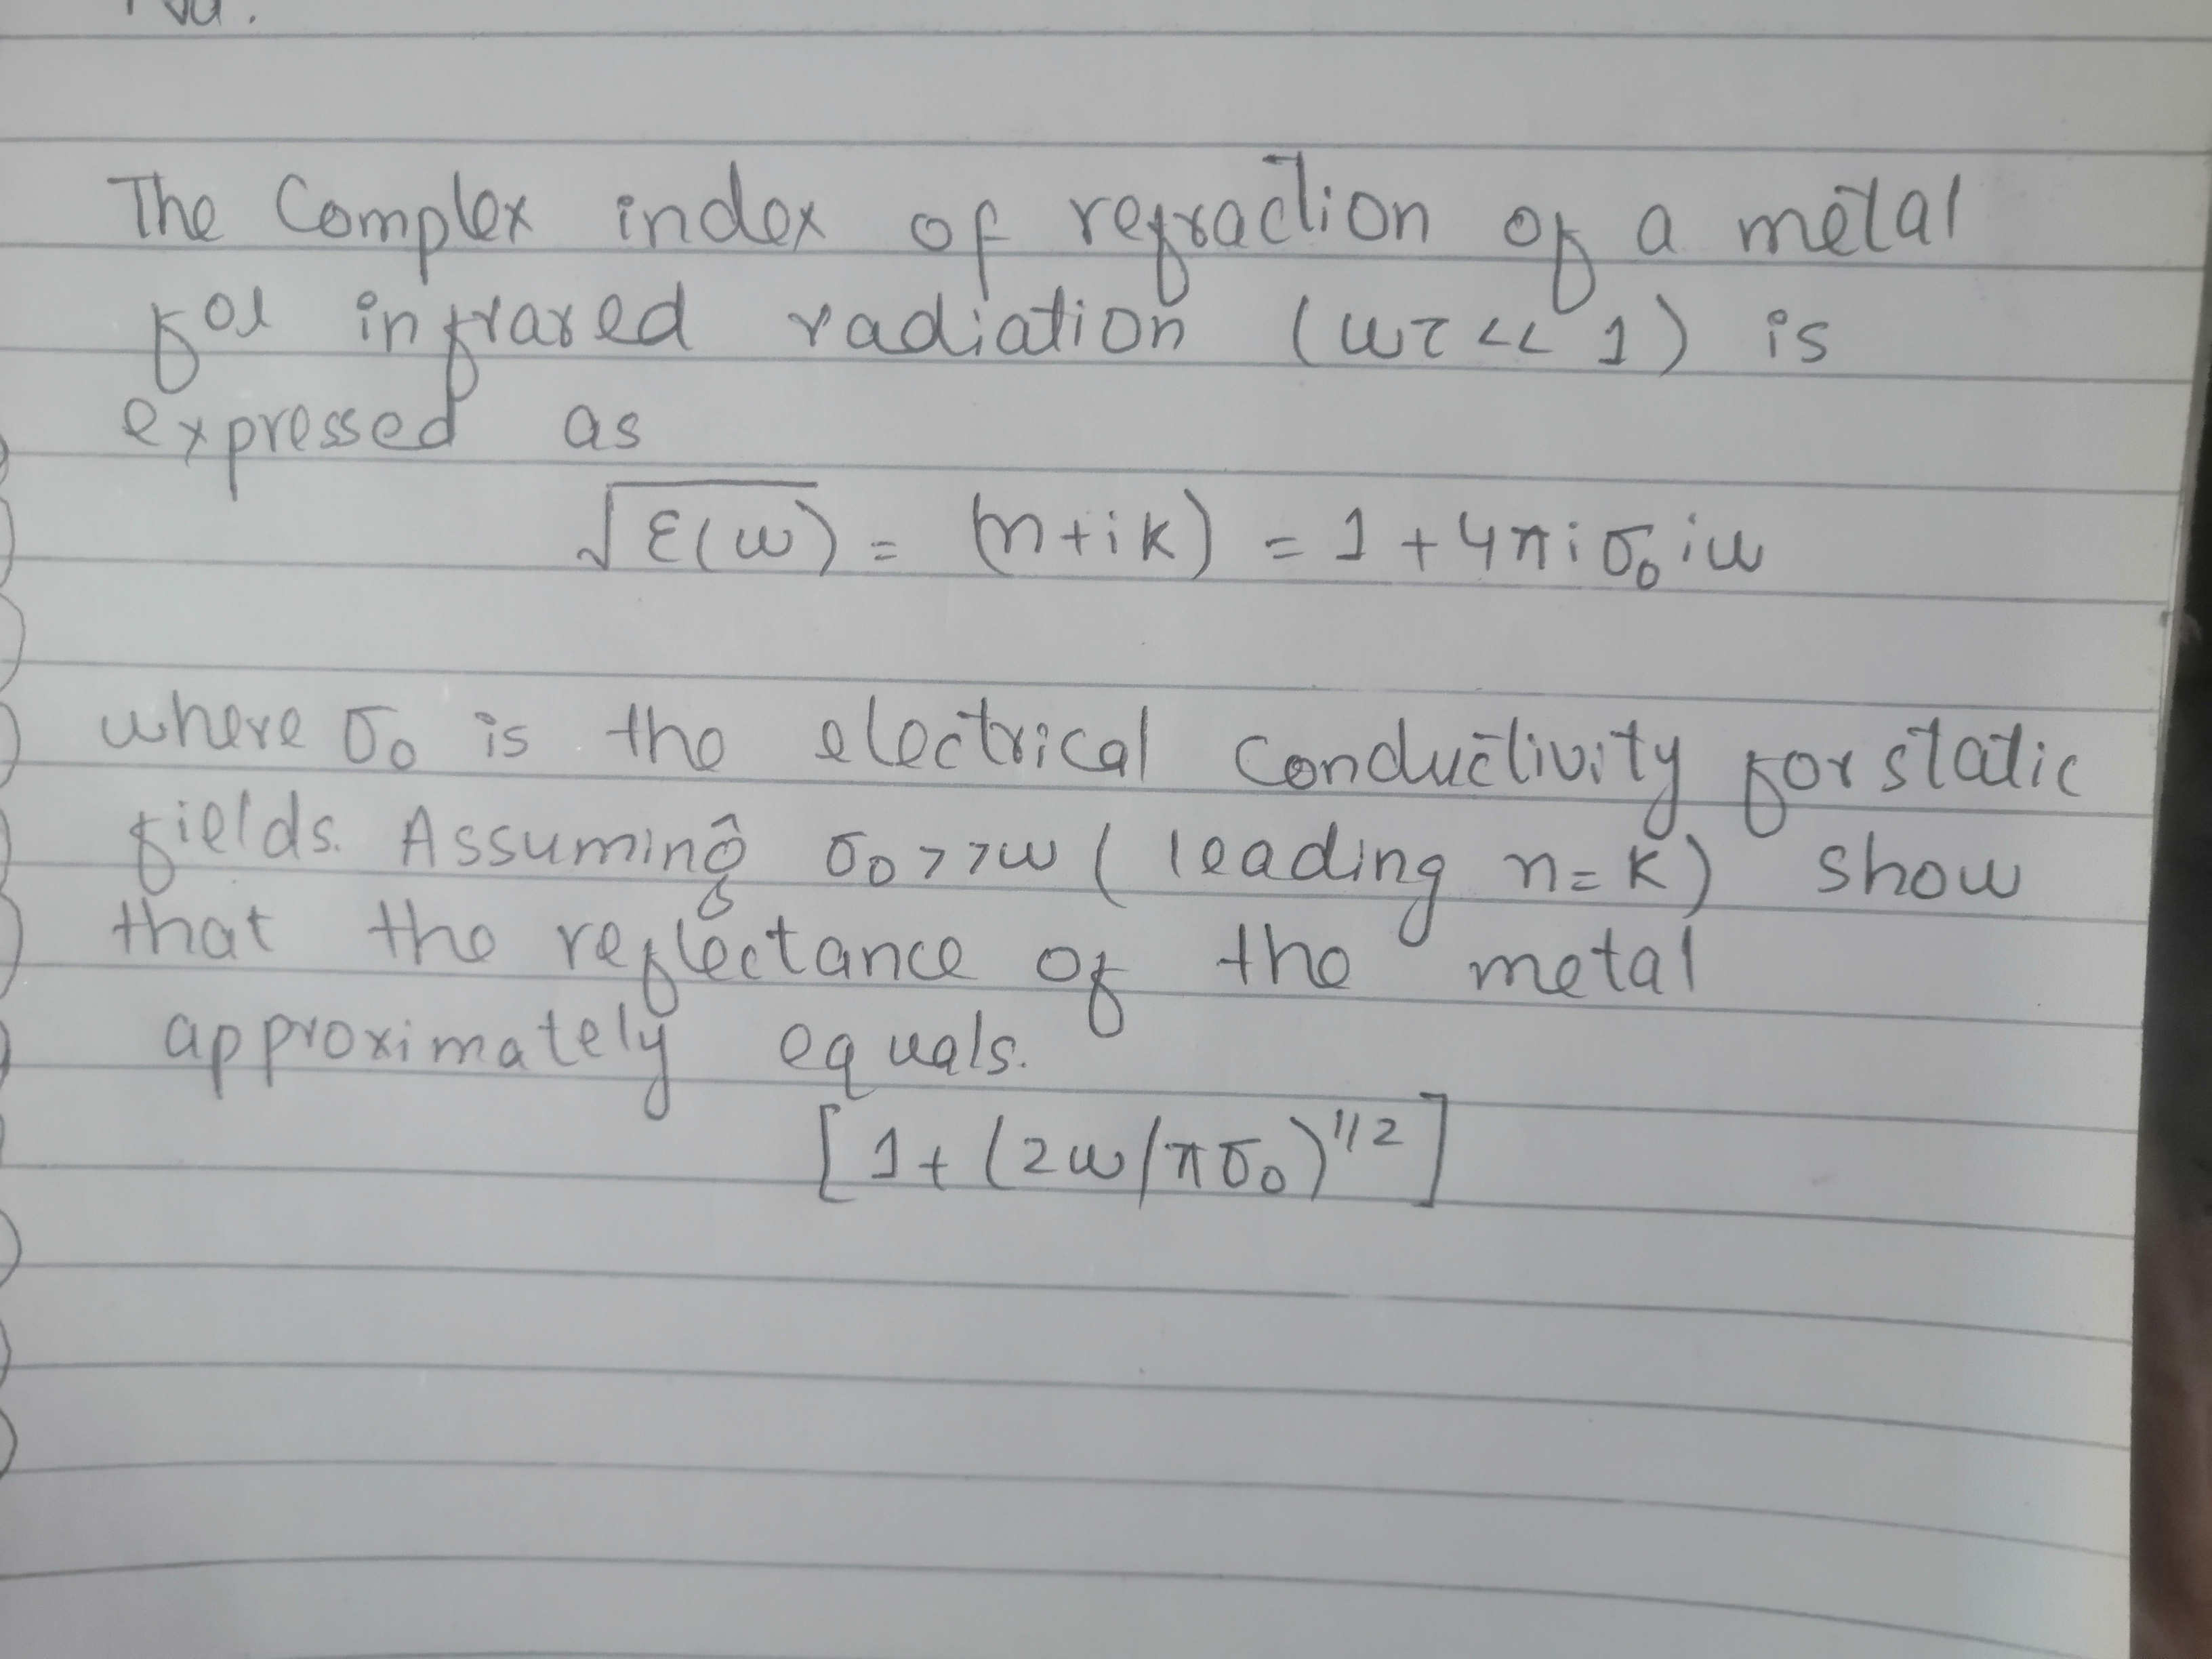 The Complex index of refraction of a metal
for infrared radiation (ωτ << 1) is
expressed as
√ε(ω) = (n+ik) = 1 + 4πiσ₀iω
where σ₀ is the electrical conductivity for static
fields. Assuming σ₀>>ω ( leading n=k) show
that the reflectance of the metal
approximately equals.
[1+(2ω/πσ₀)^1/2]